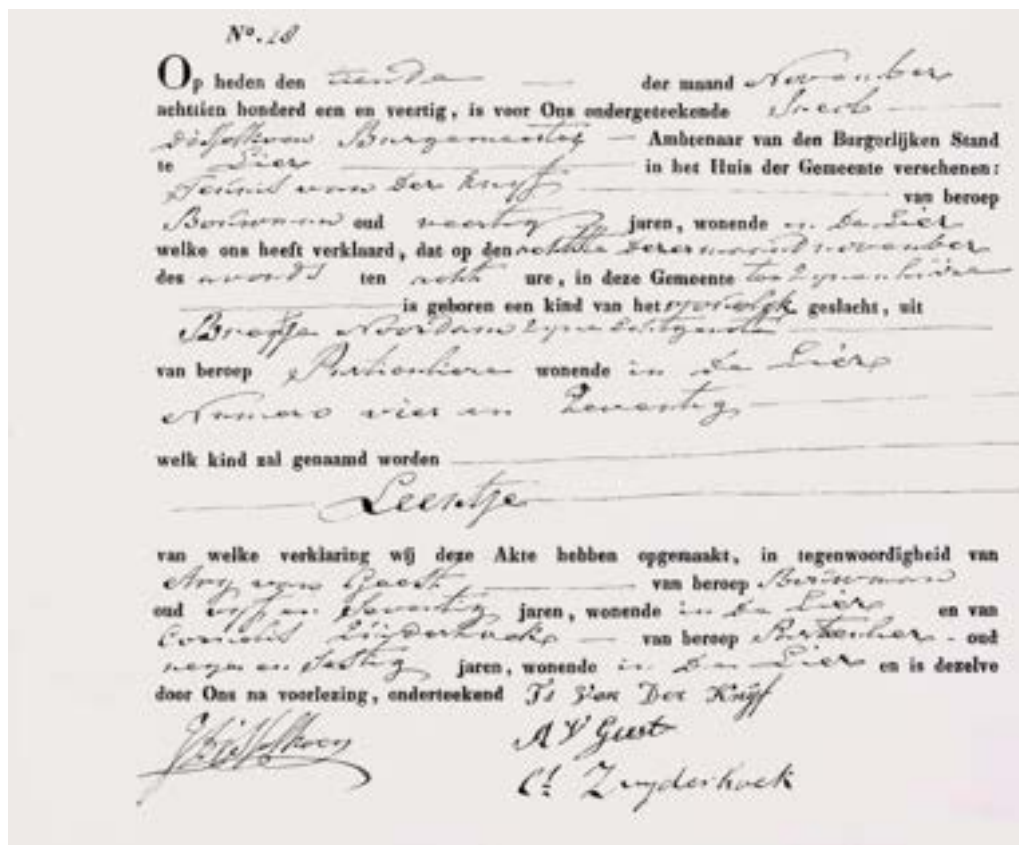 No. 28
Op heden den tiende der maand November
achttien honderd een en veertig, is voor Ons ondergeteekende Jacob
Burgemeester Ambtenaar van den Burgerlijken Stand
te Lier in het Huis der Gemeente verschenen:
van der Knijf van beroep
Bouwman oud veertig jaren, wonende in De Lier
welke ons heeft verklaard, dat op den achtste dezer maand november
des avonds ten acht ure, in deze Gemeente ten zynen huize
is geboren een kind van het vrouwelyk geslacht, uit
Noordam zyne echtgenoote
van beroep Particuliere wonende in De Lier
Numero vier en Zeventig
welk kind zal genaamd worden
Leentje
van welke verklaring wij deze Akte hebben opgemaakt, in tegenwoordigheid van
Ary van Geest van beroep Bouwman
oud vyf en jaren, wonende in De Lier en van
Cornelis Zuiderhoek van beroep Particulier oud
negen en Sestig jaren, wonende in De Lier en is dezelve
door Ons na voorlezing, onderteekend Ts Van Der Knijf
A V Geest
Cs Zuyderhoek